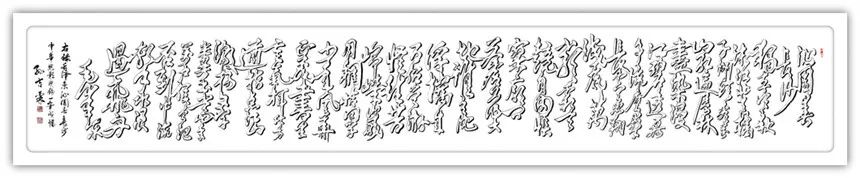 沁园春
长沙
独立寒秋
湘江北去橘
子洲头看万
山红遍层林
尽染漫
江碧透百舸
争流鹰击
长空鱼翔
浅底万
类霜天
竞自由怅
寥廓问
苍茫大地
谁主沉浮
携来百
侣曾游
忆往昔
峥嵘岁
月稠恰同学
少年风华
正茂书生
意气挥斥方
遒指点江山
激扬文字
粪土当年万
户侯曾记
否到中流
击水浪
遏飞舟
毛泽东
右录毛泽东沁园春长沙